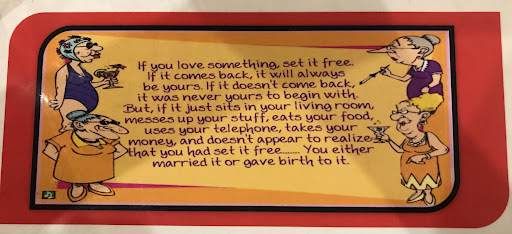 If you love something, set it free.
If it comes back, it will always
be yours. If it doesn't come back,
it was never yours to begin with.
But, if it just sits in your living room,
messes up your stuff, eats your food,
uses your telephone, takes your
money, and doesn't appear to realize
that you had set it free....... You either
married it or gave birth to it.